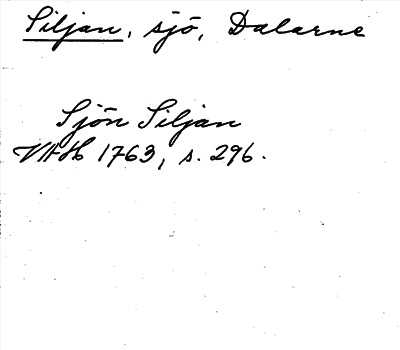 Siljan, sjö, Dalarne
Sjön Siljan
VAH 1763, s. 296.